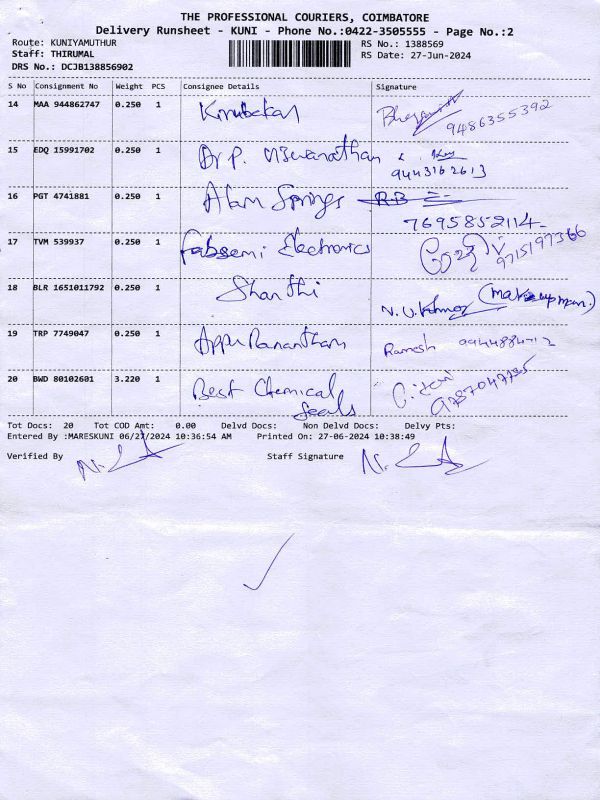 THE PROFESSIONAL COURIERS, COIMBATORE
Delivery Runsheet - KUNI - Phone No.:0422-3505555 - Page No.:2
Route: KUNIYAMUTHUR RS No.: 1388569
Staff: THIRUMAL RS Date: 27-Jun-2024
DRS No.: DCJB138856902
S No Consignment No Weight PCS Consignee Details Signature
14 MAA 944862747 0.250 1 Kirubakar
9486355392
15 EDQ 15991702 0.250 1 Dr P. Viswanathan
9443162613
16 PGT 4741881 0.250 1 Alan Springs R.B
7695852114
17 TVM 539937 0.250 1 Fabsemi Electronics
9715197366
18 BLR 1651011792 0.250 1 Shanthi
N.V.Kumar
19 TRP 7749047 0.250 1 Ramesh
20 BWD 80102601 3.220 1 Best Chemical
Seals 9787047735
Tot Docs: 20 Tot COD Amt: 0.00 Delvd Docs: Non Delvd Docs: Delvy Pts:
Entered By :MARESKUNI 06/27/2024 10:36:54 AM Printed On: 27-06-2024 10:38:49
Verified By Staff Signature